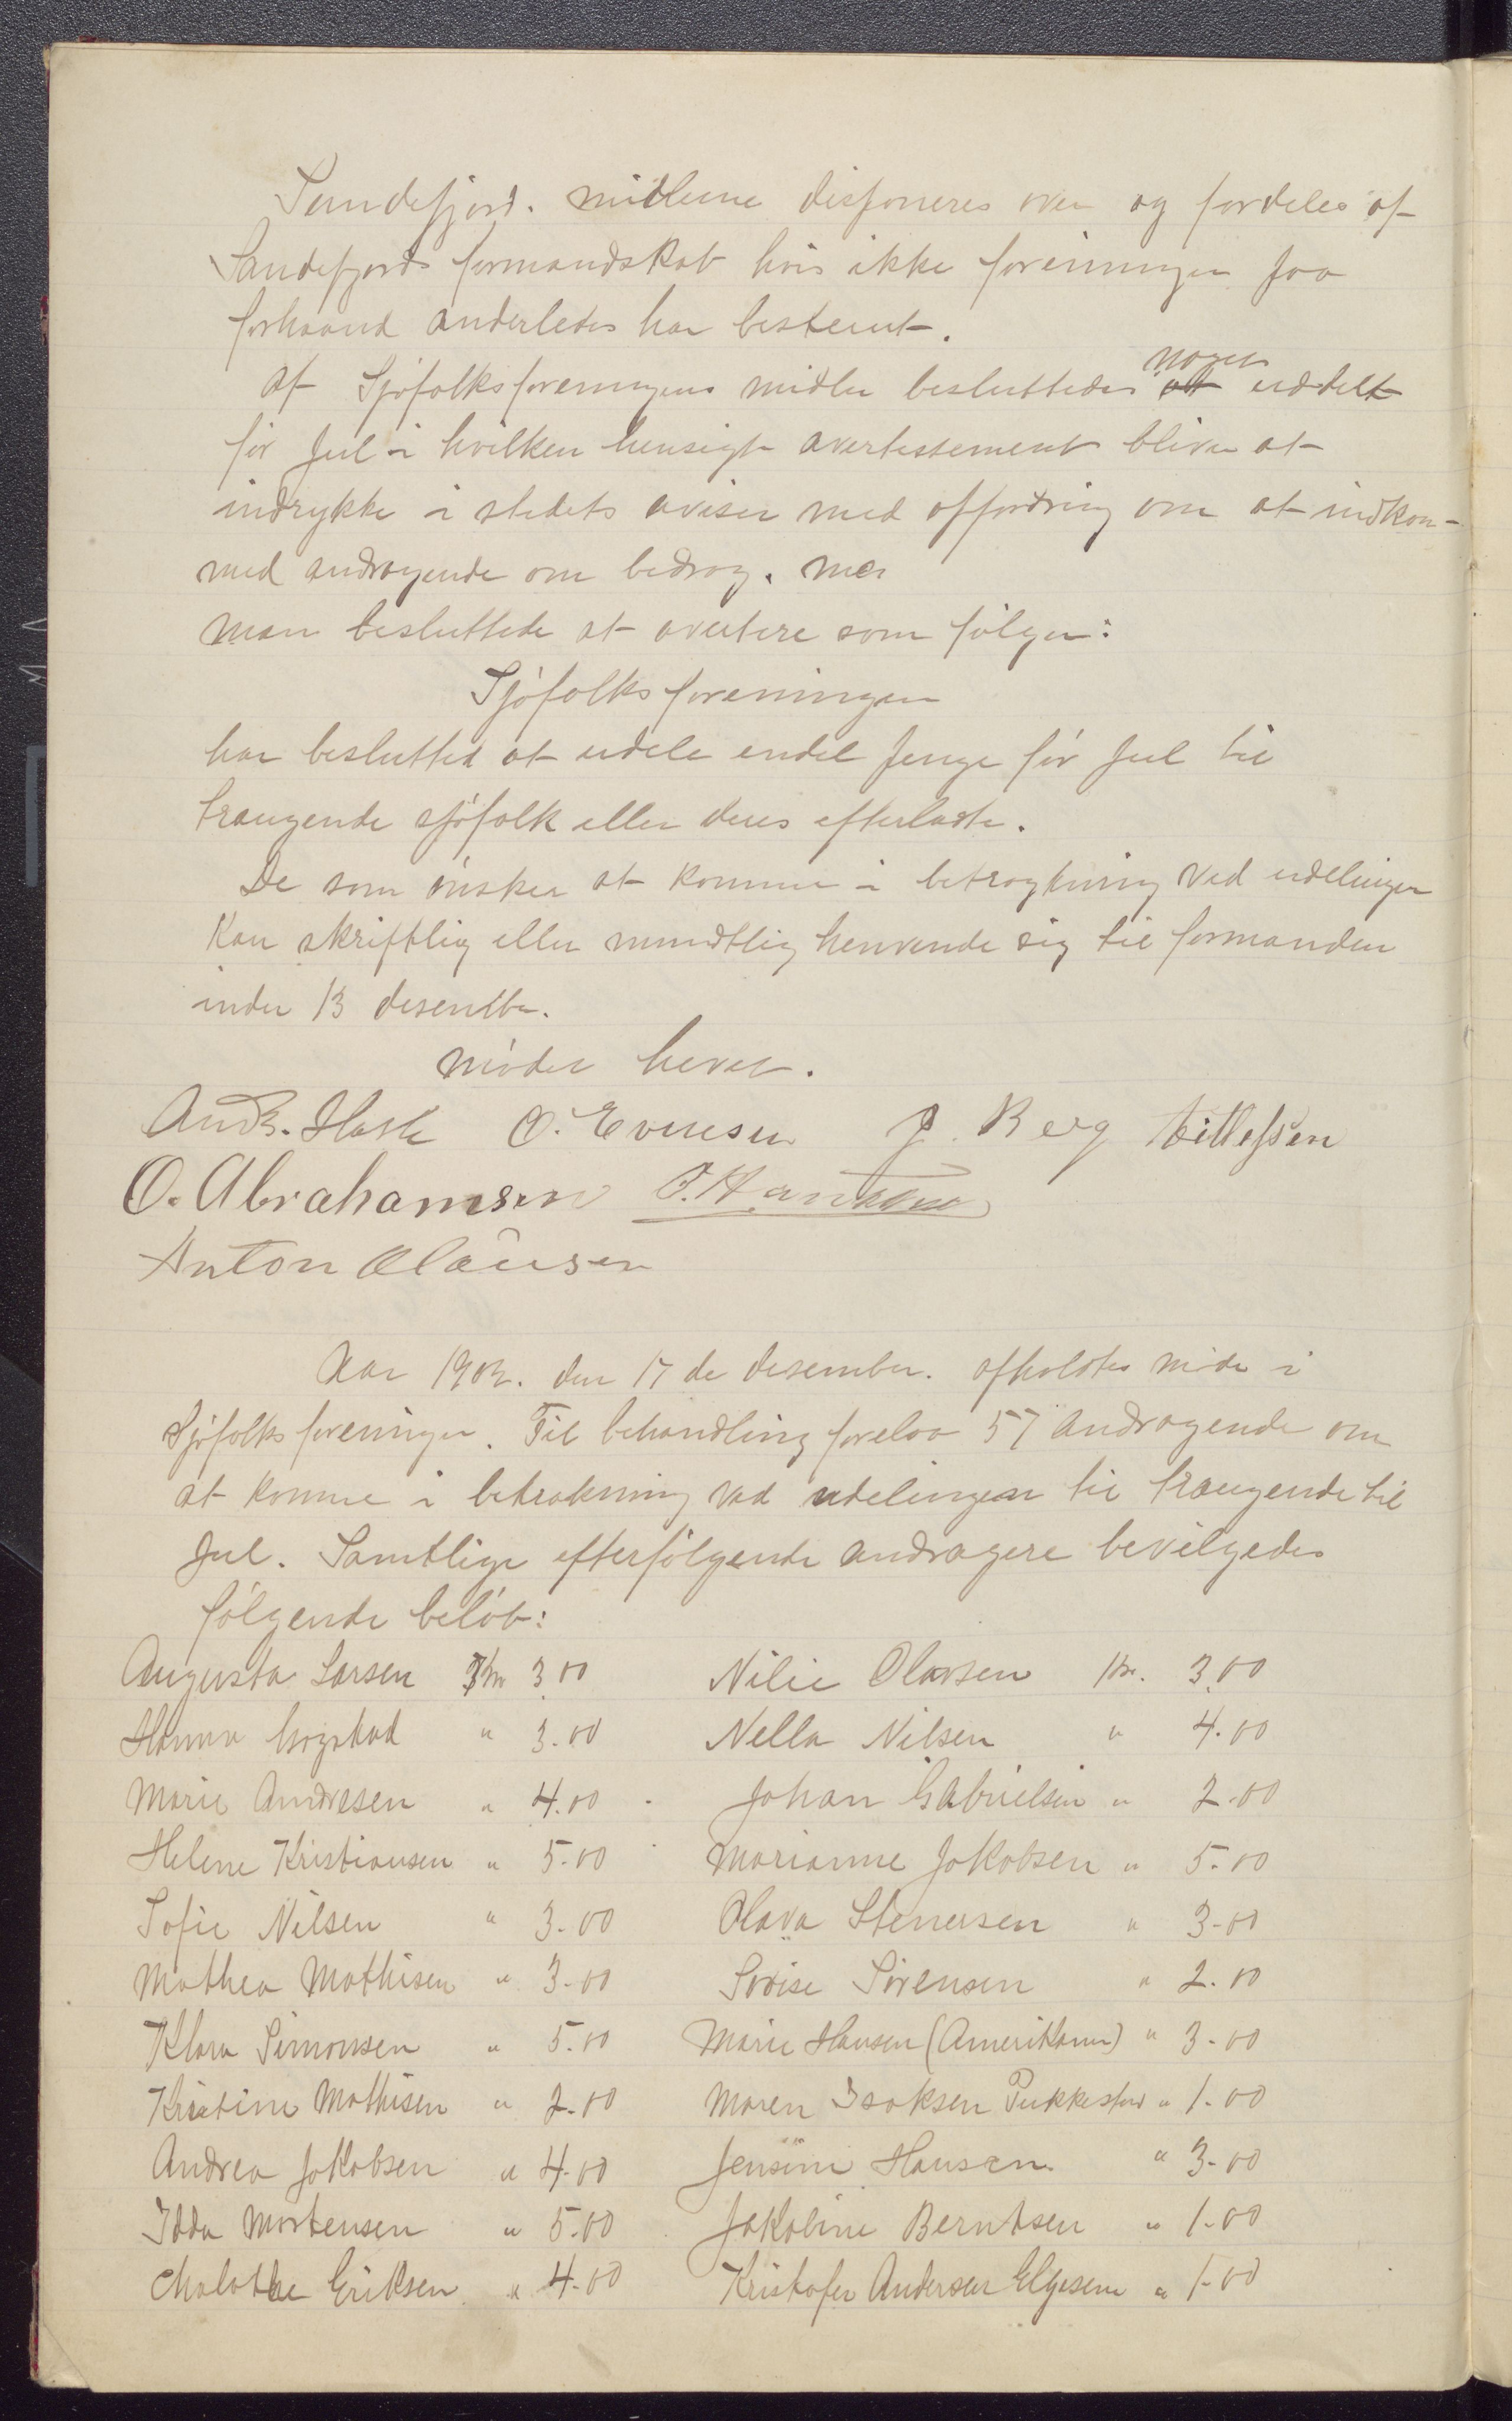 Sandefjord. midlerne disponeres over og fordeles af
Sandefjords formandskab hvis ikke foreningen paa
forhaand anderledes har bestemt.
af Sjøfolksforeningens midler besluttedes noget uddelt
før Jul i hvilken hensigt avertissement bliver at
indrykke i stedets aviser med opfordring om at indkom-
med andragende om bedrag.
Man besluttede at avertere som følger:
Sjøfolksforeningen
har besluttet at udele endel penge før Jul til
trængende sjøfolk eller deres efterladte.
De som ønsker at komme i betragtning ved udelingen
Kan skriftlig eller mundtlig henvende sig til formanden
inden 13 desember.
mødet hevet.
O. Evensen J. Berg Tillefsen
O. Abrahamsen
Anton Clausen
Aar 1902. den 17 de desember. afholdtes møde i
Sjøfolksforeningen. Til behandling forelaa 57 andragende om
at komme i betrakning ved udelingen til trængende til
Jul. Samtlige efterfølgende andragere bevilgedes
følgende beløb:
Augusta Larsen Kr 3.00 Nilie Olavsen Kr. 3.00
Hanna " 3.00 Nella Nilsen " 4.00
Marie Andresen " 4.00 Johan Gabrielsen " 2.00
Helene Kristiansen " 5.00 Marianne Jakobsen " 5.00
Sofie Nilsen " 3.00 Olava Stenersen " 3.00
Mathea Mathisen " 3.00 Lovise Sørensen " 2.00
Klara Simonsen " 5.00 Marie Hansen (Amerikaner) " 3.00
Kristine Mathisen " 2.00 Maren Isaksen Pukkestad " 1.00
Andrea Jakobsen " 4.00 Jensine Hansen " 3.00
Idda Mortensen " 5.00 Jakobine Berntsen " 1.00
Eriksen " 4.00 Kristofer Andersen Elgesem " 1.00